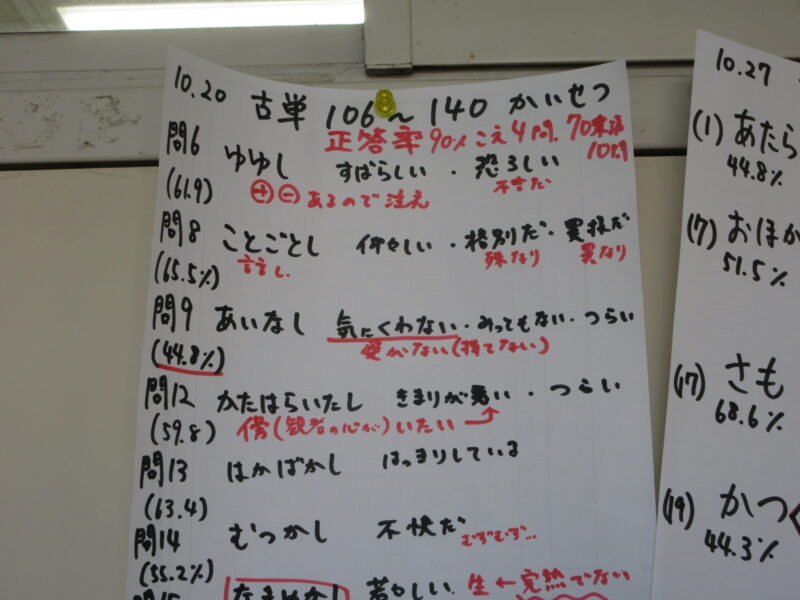 10.20 古単 106～140 かいせつ
正答率 90%こえ4問. 70未満10問
問6 ゆゆし すばらしい・恐ろしい
(61.9) ⊕⊖あるので注え 不吉だ
問8 ことごとし 仰々しい・格別だ・異様だ
(65.5%) 言言し 殊なり 異なり
問9 あいなし 気にくわない・みっともない・つらい
(44.8%) 愛がない(持てない)
問12 かたはらいたし きまりが悪い・つらい
(59.8) 傍(観者の心が)いたい
問13 はかばかし はっきりしている
(63.4)
問14 むつかし 不快だ むずむず…
(55.2%)
問15 なまめかし 若々しい 生←完熟でない
10.27
(1) あたら
44.8%
(7) おほか
51.5%
(17) さも
68.6%
(19) かつ
44.3%